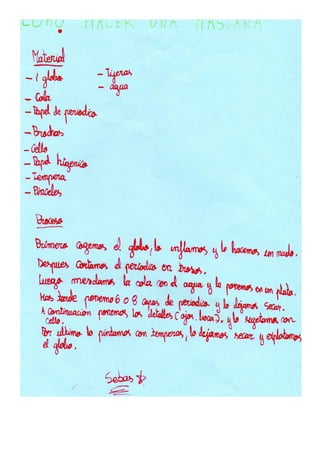 COMO HACER UNA MASCARA
Material
- 1 globo
- Tijeras
- agua
- Cola
- Papel de periodico
- Brochas
- Cello
- Papel higenico
- Tempera
- Pinceles
Proceso
Primero cogemos el globo, lo inflamos y lo hacemos un nudo.
Despues cortamos el periodico en trosos.
Luego mesclamos la cola con el agua y la ponemos en un plato.
Mas tarde ponemo 6 o 8 capas de periodico y lo dejamos secar.
A continuación ponemos los detalles (ojos, boca), y lo sujetamos con
cello.
Por ultimo lo pintamos con temperas, lo dejamos secar y explotamos
el globo.
Sebas